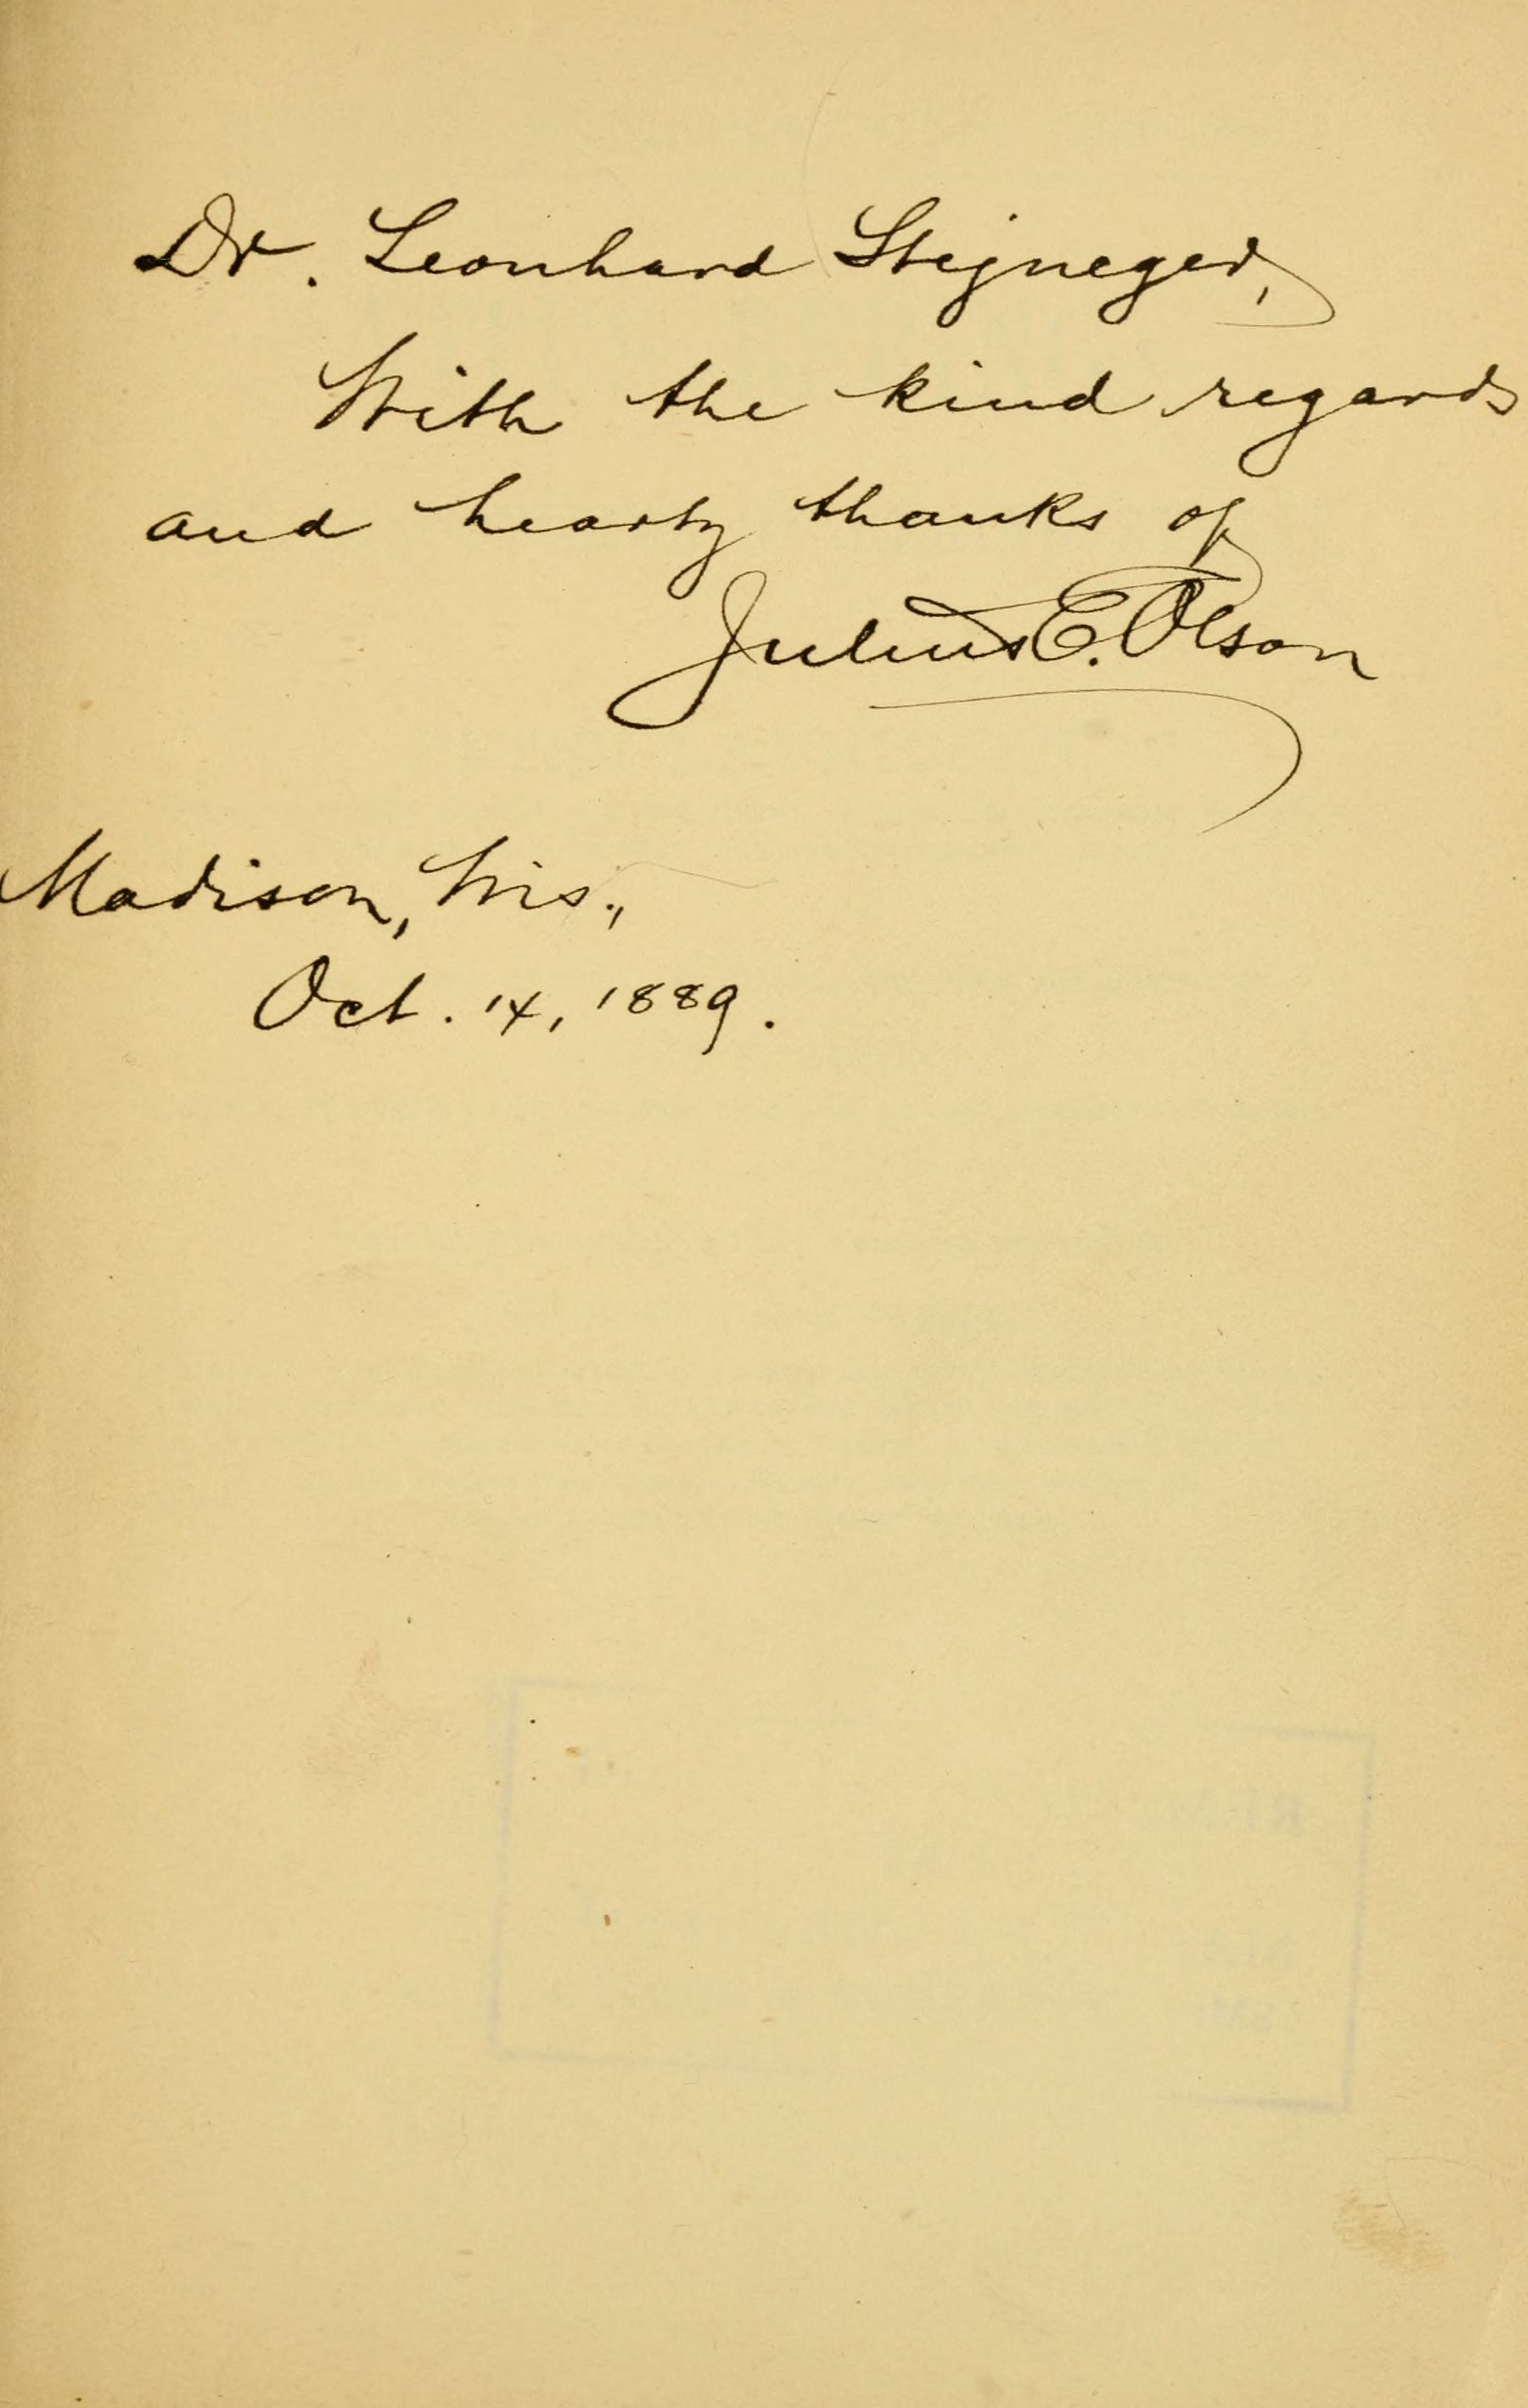 Dr. Leonhard Stejneger,
With the kind regards
and hearty thanks of
Julius E. Olson
Madison, Wis.,
Oct. 14, 1889.